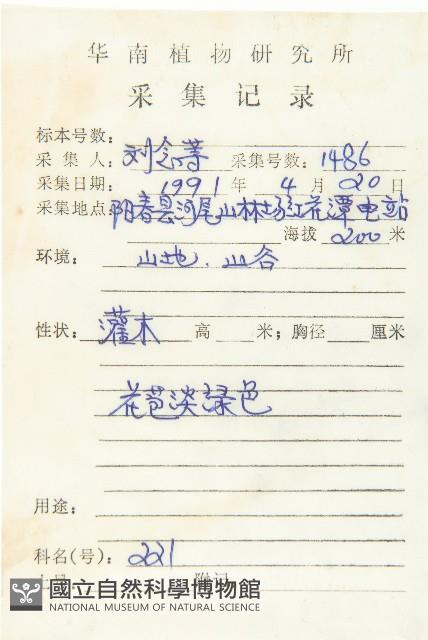 华南植物研究所
采集记录
标本号数:
采集人: 刘念等 采集号数: 1486
采集日期: 1991年4月20日
采集地点: 阳春县河尾山林场红花潭电站
海拔 200 米
环境: 山地.山谷
性状: 灌木 高 米; 胸径 厘米
花苞淡绿色
用途:
科名(号): 221
國立自然科學博物館
NATIONAL MUSEUM OF NATURAL SCIENCE